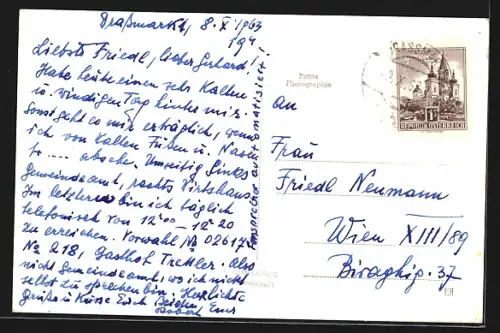 Draßmarkt, 8. X 1963
19 h
Liebste Friedl, lieber Gerhard!
Habe heute einen sehr kalten
u. windigen Tag hinter mir.
Sonst geht es mir erträglich, wenn
ich von kalten Füßen u. Nasen
absehe. Umseitig links
Gemeindeamt, rechts Wirtshaus.
Im letzteren bin ich täglich
telefonisch von 12 00 - 12 20
zu erreichen. Vorwahl No 02617
No 218, Gasthof Trettler. Also
nicht Gemeindeamt, wo ich nicht
selbst zu sprechen bin. Herzlichste
Grüße u. Küsse Euch Beiden Euer
Robert
Fernsprecher automatisiert
Echte
Photographie
REPUBLIK ÖSTERREICH
An
Frau
Friedl Neumann
Wien XIII/89
Biraghig. 37